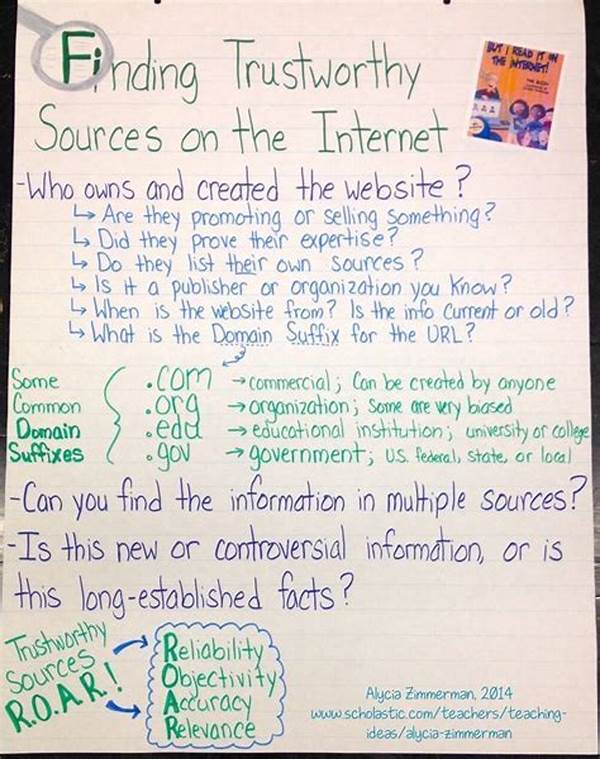 Finding Trustworthy
Sources on the Internet
BUT I READ IT ON
THE INTERNET!
-Who owns and created the website?
↳ Are they promoting or selling something?
↳ Did they prove their expertise?
↳ Do they list their own sources?
↳ Is it a publisher or organization you know?
↳ When is the website from? Is the info current or old?
↳ What is the Domain Suffix for the URL?
Some Common Domain Suffixes
.com → commercial; Can be created by anyone
.org → organization; Some are very biased
.edu → educational institution; university or college
.gov → government; U.S. federal, state, or local
-Can you find the information in multiple sources?
-Is this new or controversial information, or is
this long-established facts?
Trustworthy
Sources
R.O.A.R.!
Reliability
Objectivity
Accuracy
Relevance
Alycia Zimmerman, 2014
www.scholastic.com/teachers/teaching-
ideas/alycia-zimmerman